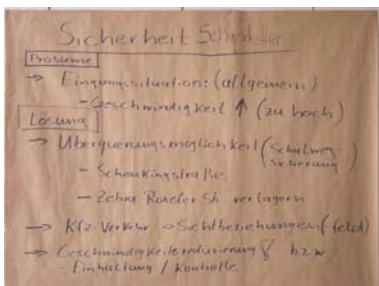 Sicherheit
Probleme
→ Eingangssituation: (allgemein)
- Geschwindigkeit ↑ (zu hoch)
Lösung
→ Überquerungsmöglichkeit (Schulweg
sicherung)
- Schenkingstraße
- Zebra Str. verlagern
→ Kfz-Verkehr → Sichtbeziehungen (feld)
→ Geschwindigkeitsreduzierung bzw
- Einhaltung / Kontrolle